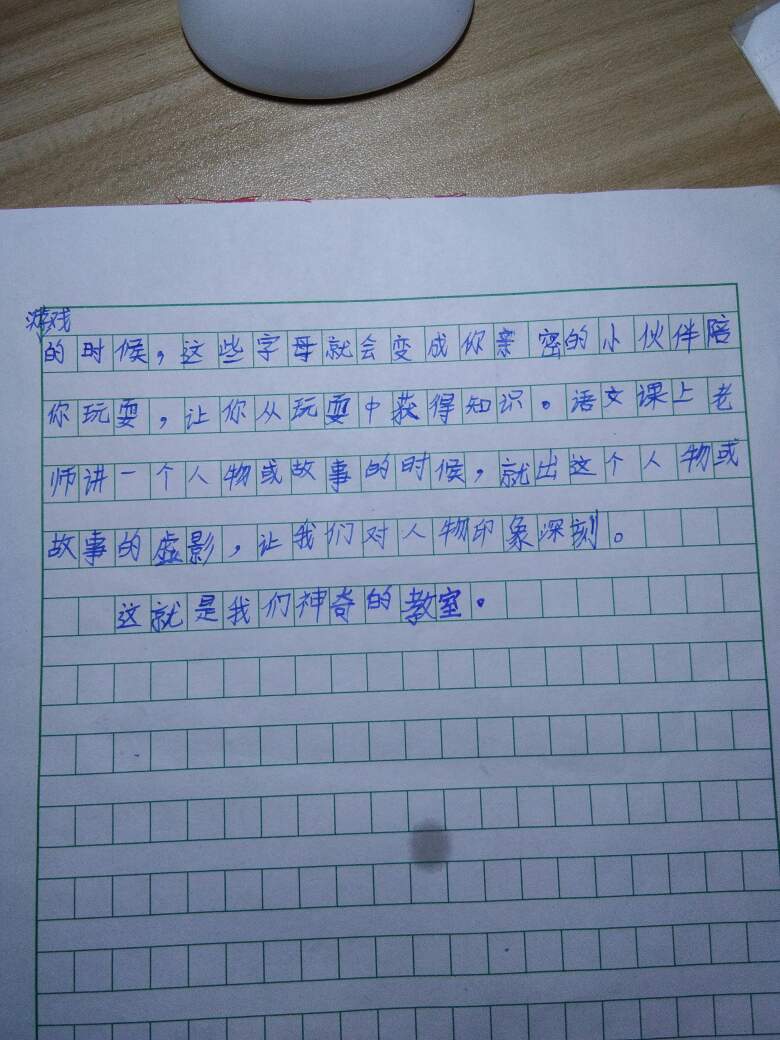 游戏
的时候，这些字母就会变成你亲密的小伙伴陪
你玩耍，让你从玩耍中获得知识。语文课上老
师讲一个人物或故事的时候，就出这个人物或
故事的虚影，让我们对人物印象深刻。
这就是我们神奇的教室。